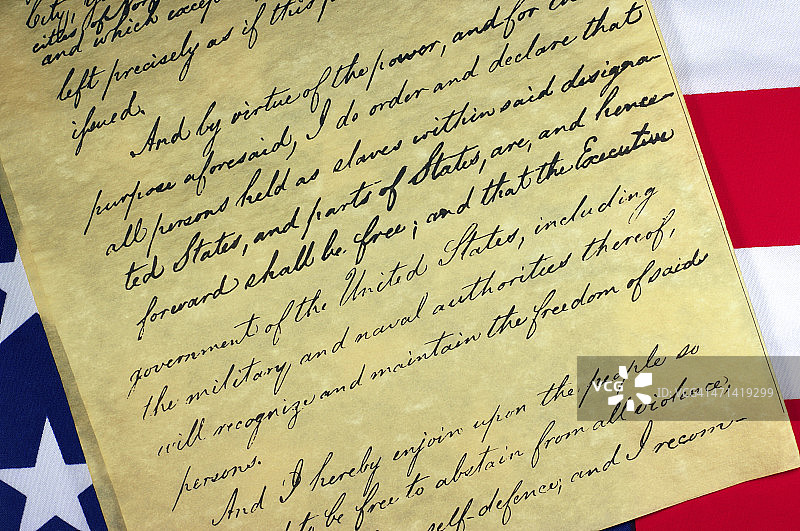 City,
cities of Nor
and which except
left precisely as if this p
issued.
And by virtue of the power, and for
purpose aforesaid, I do order and declare that
all persons held as slaves within said designa-
ted States, and parts of States, are, and hence-
forward shall be free; and that the Executive
government of the United States, including
the military and naval authorities thereof,
will recognize and maintain the freedom of said
persons.
And I hereby enjoin upon the people so
to be free to abstain from all violence,
self-defence; and I recom-
VCG
VCG41471419299